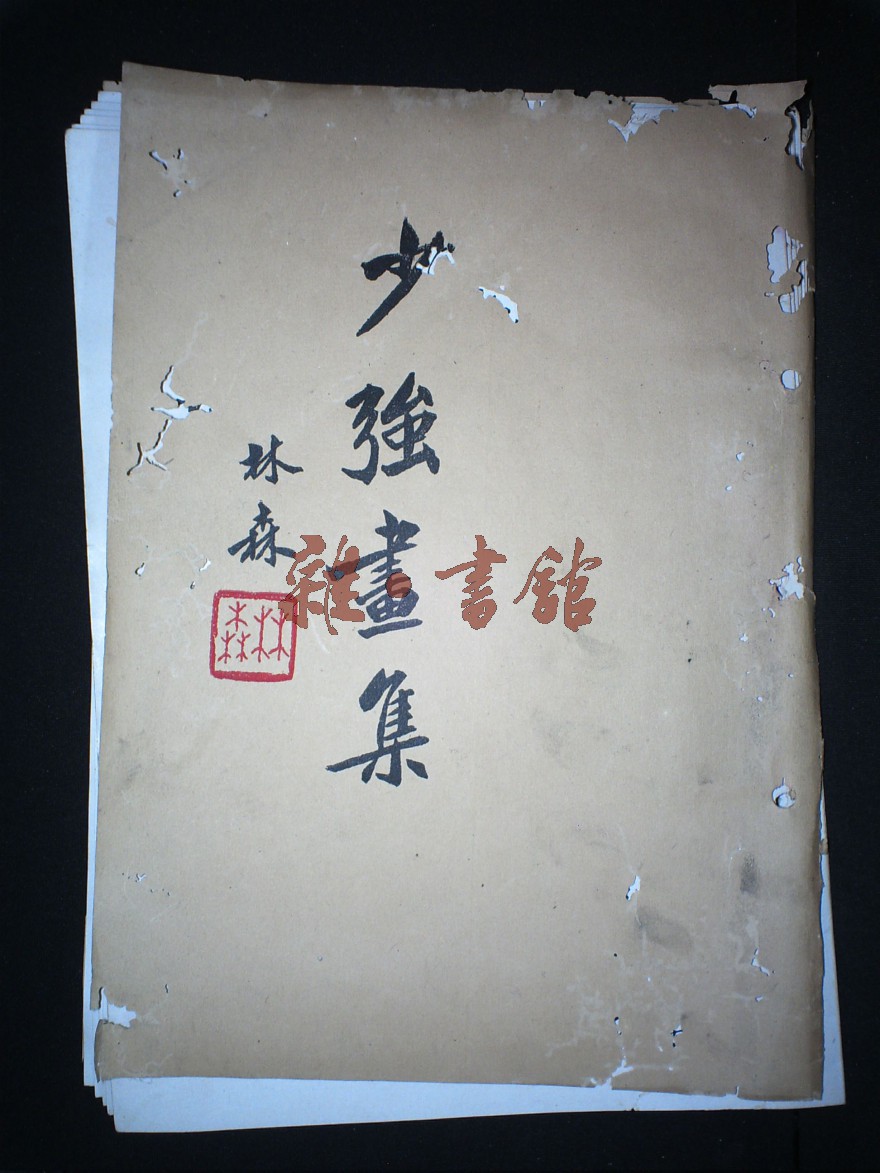 少強畫集
林森
林森
雜·書館